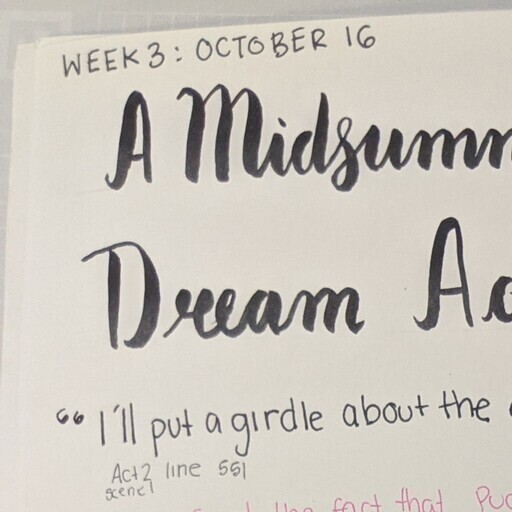 WEEK 3: OCTOBER 16
A Midsumm
Dream Ac
"I'll put a girdle about the
Act 2 line 551
scene 1
the fact that Puc